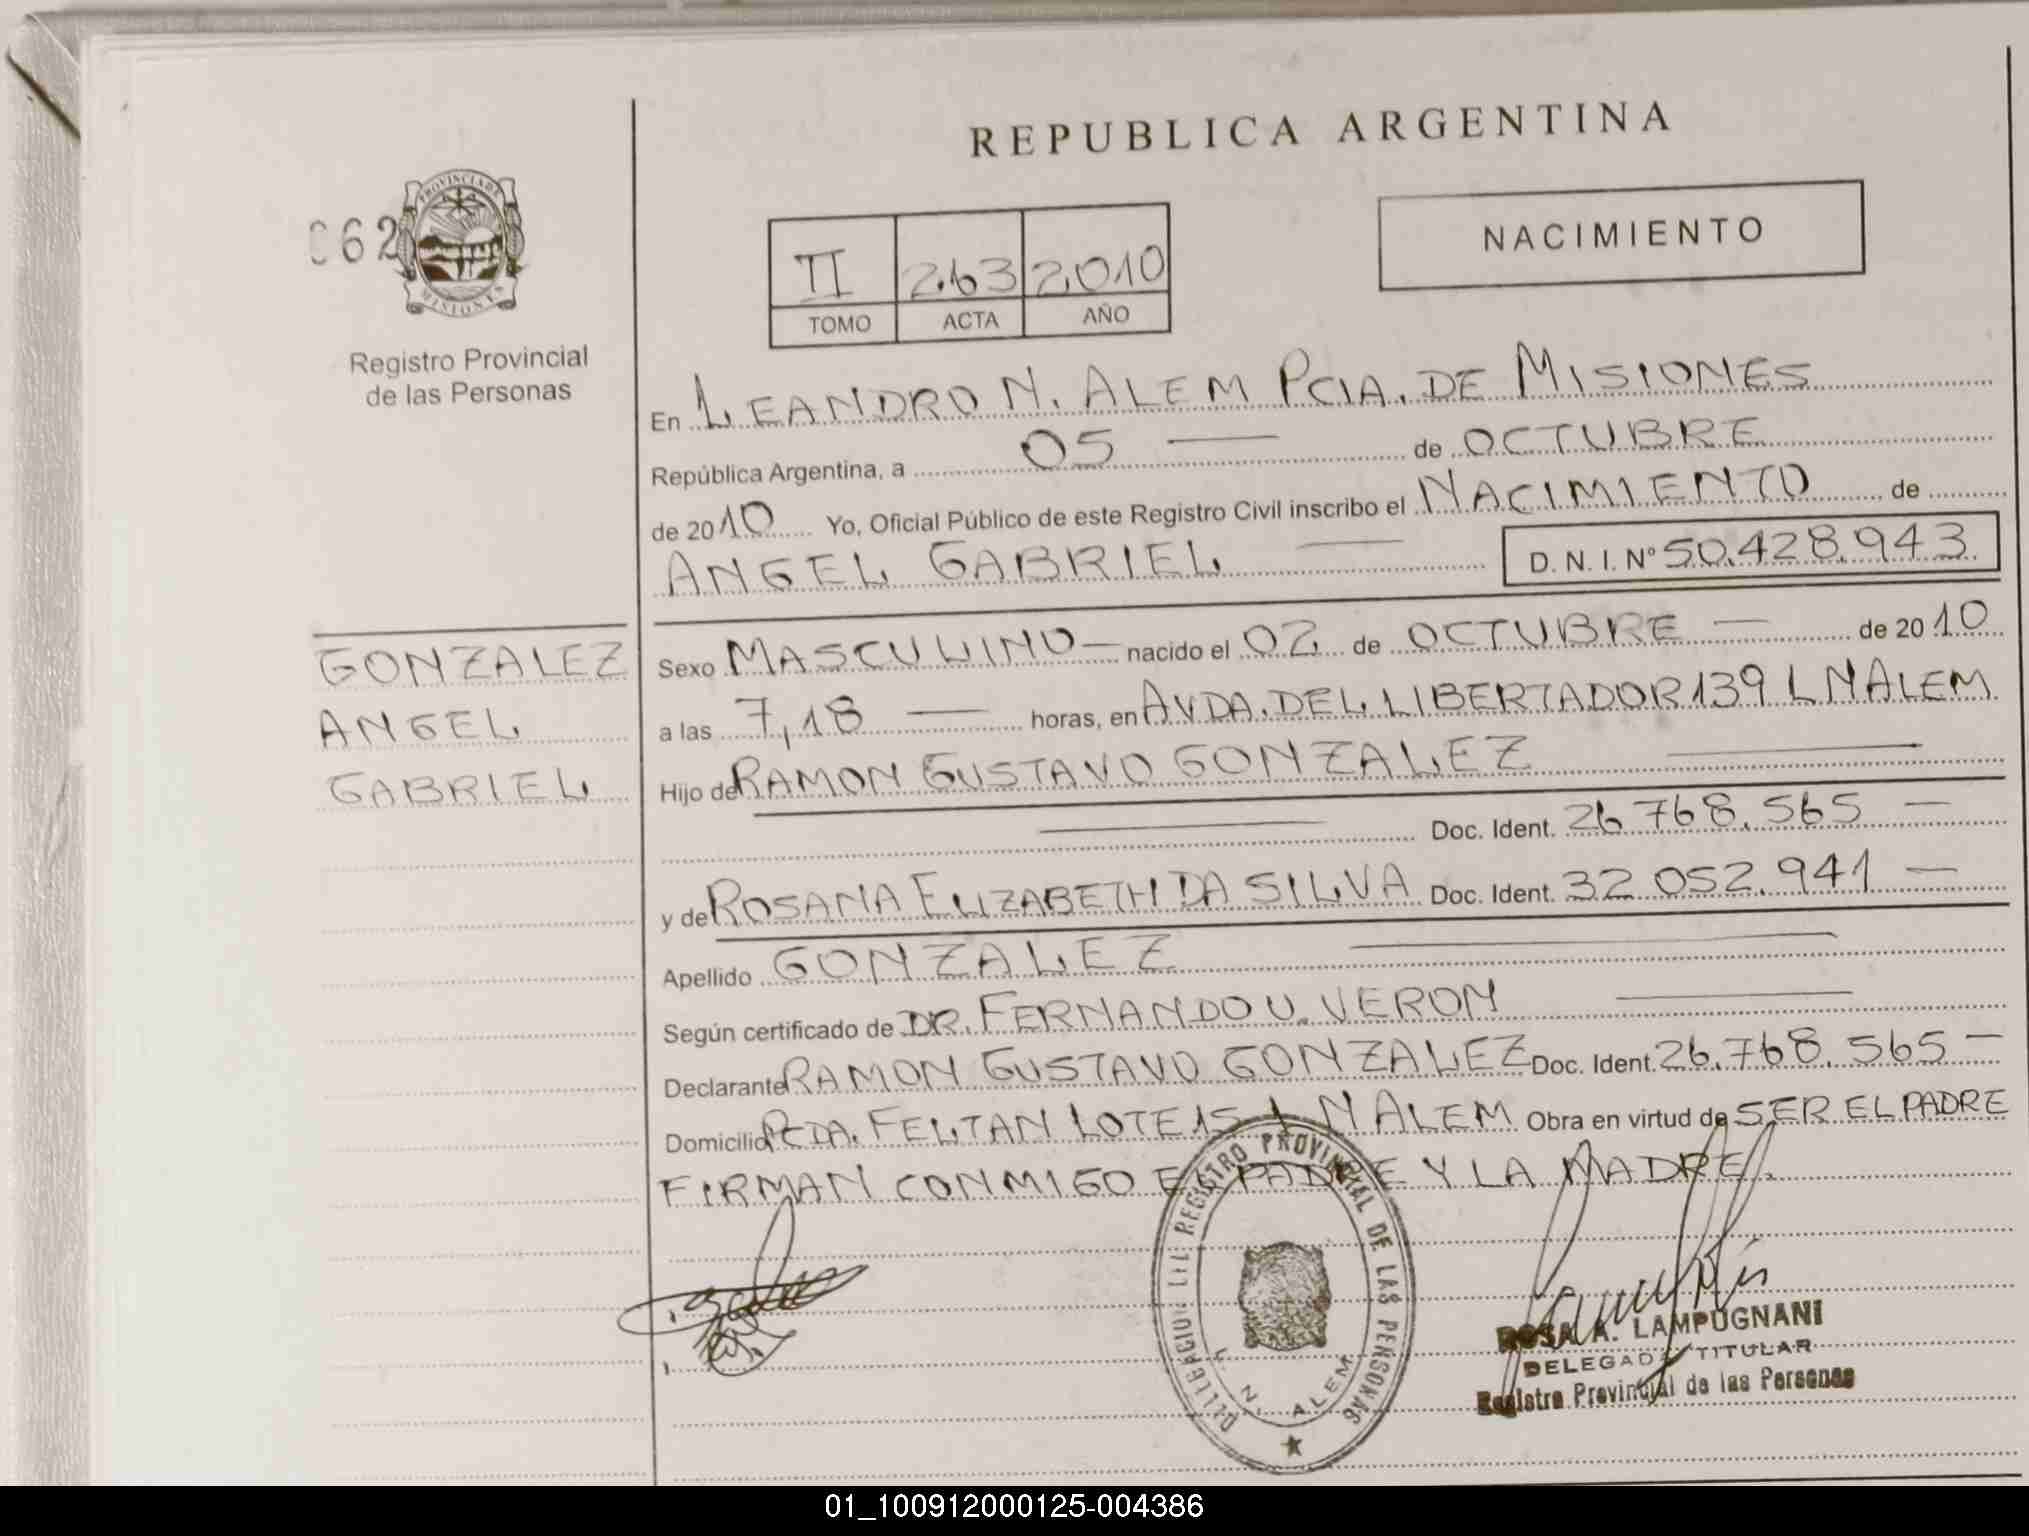 REPUBLICA ARGENTINA
NACIMIENTO
062
PROVINCIA DE
MISIONES
II 263 2010
TOMO ACTA AÑO
Registro Provincial
de las Personas
En LEANDRO N. ALEM PCIA. DE MISIONES
República Argentina, a 05 — de OCTUBRE
de 2010 Yo, Oficial Público de este Registro Civil inscribo el NACIMIENTO de
ANGEL GABRIEL — D. N. I. Nº 50.428.943
GONZALEZ
ANGEL
GABRIEL
Sexo MASCULINO — nacido el 02 de OCTUBRE — de 2010
a las 7,18 — horas, en AVDA. DEL LIBERTADOR 139 L N ALEM
Hijo de RAMON GUSTAVO GONZALEZ —
— Doc. Ident. 26.768.565 —
y de ROSANA ELIZABETH DA SILVA Doc. Ident. 32.052.941 —
Apellido GONZALEZ —
Según certificado de DR. FERNANDO U. VERON —
Declarante RAMON GUSTAVO GONZALEZ Doc. Ident. 26.768.565 —
Domicilio PCIA. FELTAN LOTE 15 L N ALEM Obra en virtud de SER EL PADRE
FIRMAN CONMIGO EL PADRE Y LA MADRE.
REGISTRO PROVINCIAL DE LAS PERSONAS
L. N. ALEM
ROSA A. LAMPUGNANI
DELEGADA TITULAR
Registro Provincial de las Personas
01_100912000125-004386